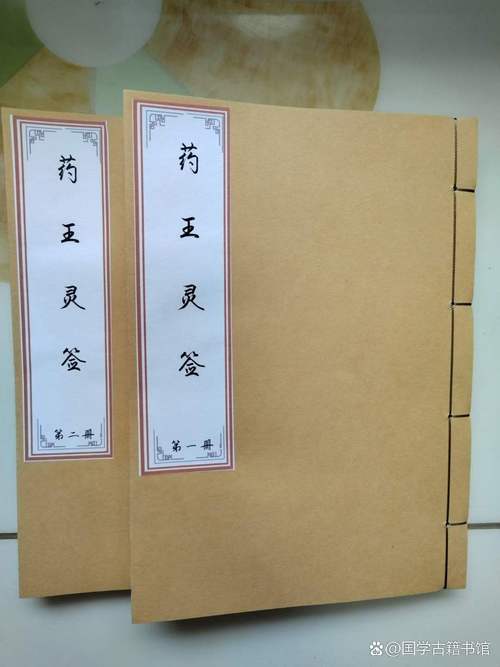 药王灵签
第一册
药王灵签
第二册
国学古籍书馆